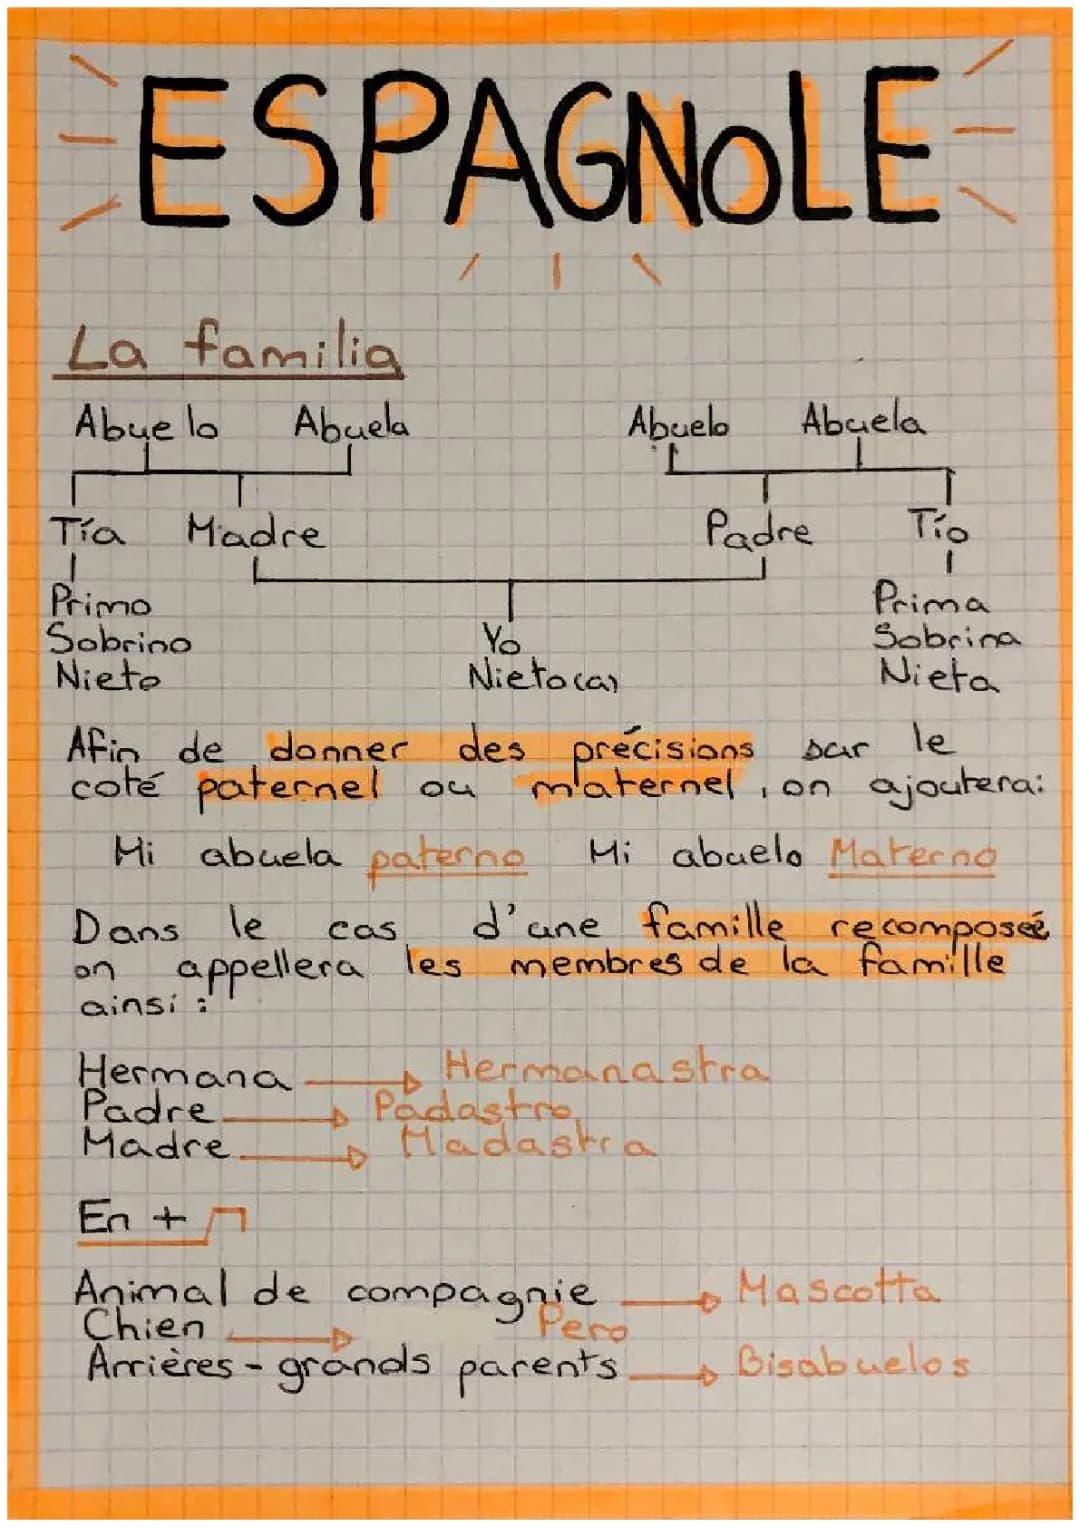 ESPAGNOLE
La familia
Abuelo Abuela Abuelo Abuela
Tía Madre Padre Tío
Primo Prima
Sobrino Yo Sobrina
Nieto Nieto(a) Nieta
Afin de donner des précisions sur le
coté paternel ou maternel, on ajoutera:
Mi abuela paterno Mi abuelo Materno
Dans le cas d'une famille recomposée
on appellera les membres de la famille
ainsi :
Hermana → Hermanastra
Padre → Padastro
Madre → Madastra
En +
Animal de compagnie → Mascotta
Chien → Pero
Arrières-grands parents → Bisabuelos